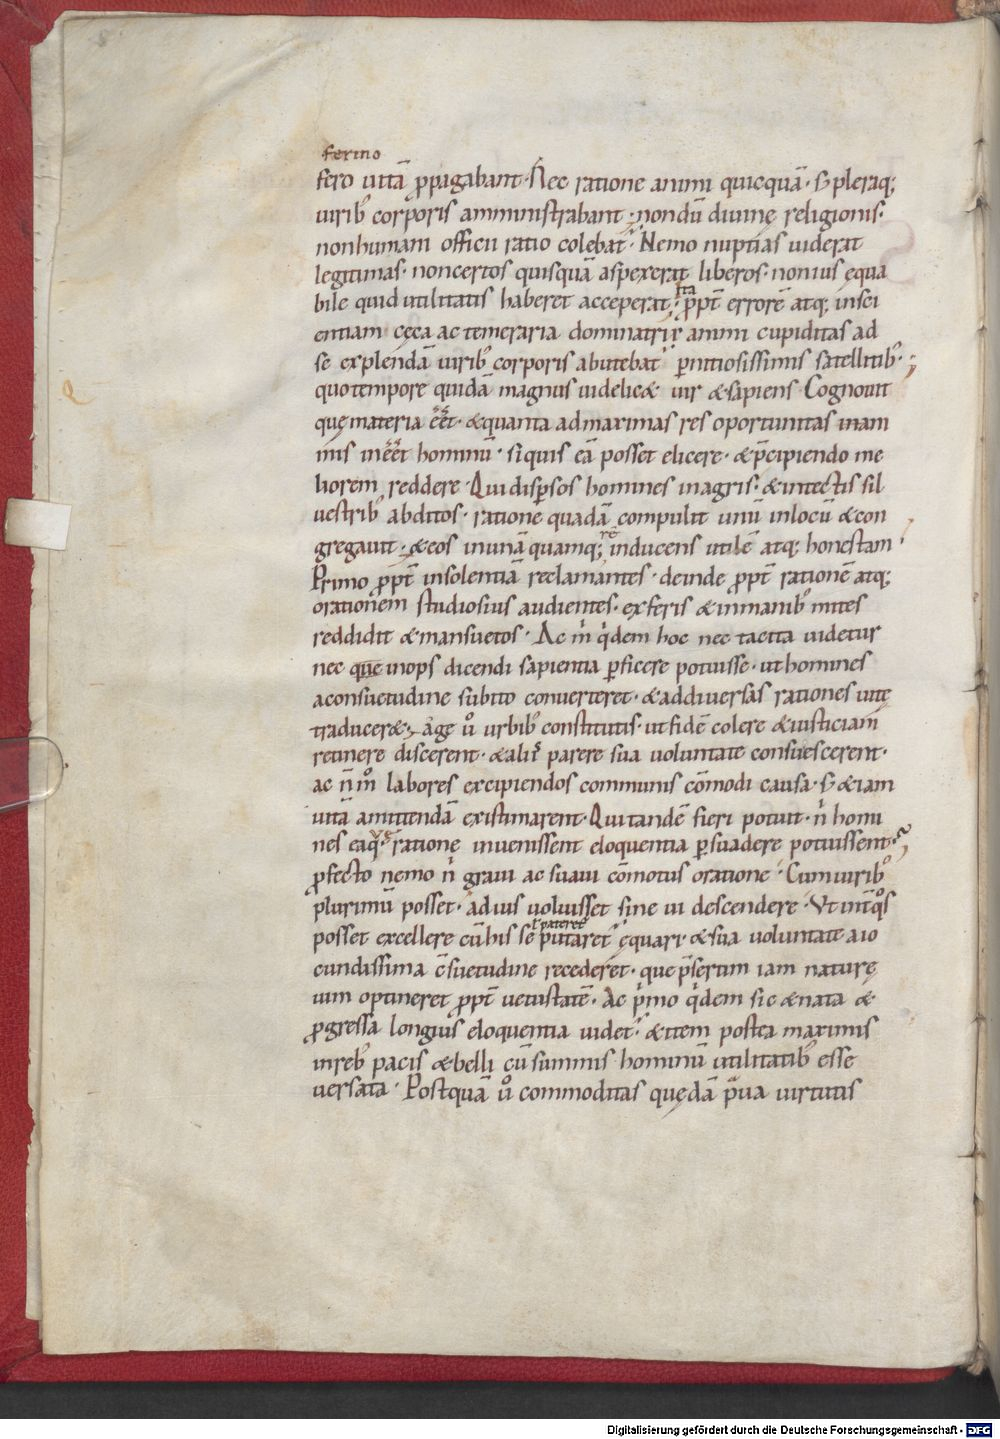 ferino
fero uitā ꝓpagabant· Nec ratione animi quicquā· s; pleraq;
uirib; corporis amministrabant· nondū diuinę religionis·
non humani officii ratio colebat᷑· Nemo nuptias uiderat
legitimas· non certos quisquā aspexerat liberos· non ius ęqua
bile quid utilitatis haberet acceperat· Ita ꝓpt̄ errorē atq; insci
entiam cęca ac temeraria dominatrix animi cupiditas ad
se explendā uirib; corporis abutebat᷑ ꝑnitiosissimis satellitib;·
quo tempore quidā magnus uidelic& uir & sapiens Cognouit
quę materia eēt· & quanta ad maximas res oportunitas in ani
mis ineēt hominū· siquis eā posset elicere· & p̄cipiendo me
liorem reddere· Qui disꝑsos homines in agris· & in tectis sil
uestrib; abditos· ratione quadā compulit unū in locū & con
gregauit· & eos in unā quamq; rē inducens utilē atq; honestam
Primo ꝓpt̄ insolentiā reclamantes· deinde ꝓpt̄ rationē atq;
orationem studiosius audientes· ex feris & inmanib; mites
reddidit & mansuetos· Ac m̍ q̍dem hoc nec tacita uidetur
nec que inops dicendi sapientia ꝑficere potuisse· ut homines
a consuetudine subito conuerteret· & ad diuersas rationes uitę
traducer&· age ůo urbib; constitutis· ut fidē colere & iusticiam
retinere discerent· & aliis parere sua uoluntate consuescerent·
ac n̄ m̊ labores excipiendos communis cōmodi causa· s; & iam
uitā amittendā existimarent· Qui tandē fieri potuit· n̍ homi
nes ea q̨ ratione inuenissent eloquentia ꝑsuadere potuissent·
ꝓfecto nemo n̍ graui ac suaui cōmotus oratione· Cum uirib;
plurimū posset· ad ius uoluisset sine ui descendere· Ut int̄ q̊s
posset excellere cū his se putaret᷑ ęquari· & sua uoluntate a io
ł pateret᷑
cundissima c̄suetudine recederet· que p̄sertim iam naturę
uim optineret ꝓpt̄ uetustatē· Ac p̍mo q̍dem sic & nata &
ꝓgressa longius eloquentia uidet᷑· & item postea maximis
in reb; pacis & belli cū summis hominū utilitatib; esse
uersata· Postquā ů commoditas quędā praua uirtutis
Digitalisierung gefördert durch die Deutsche Forschungsgemeinschaft - DFG